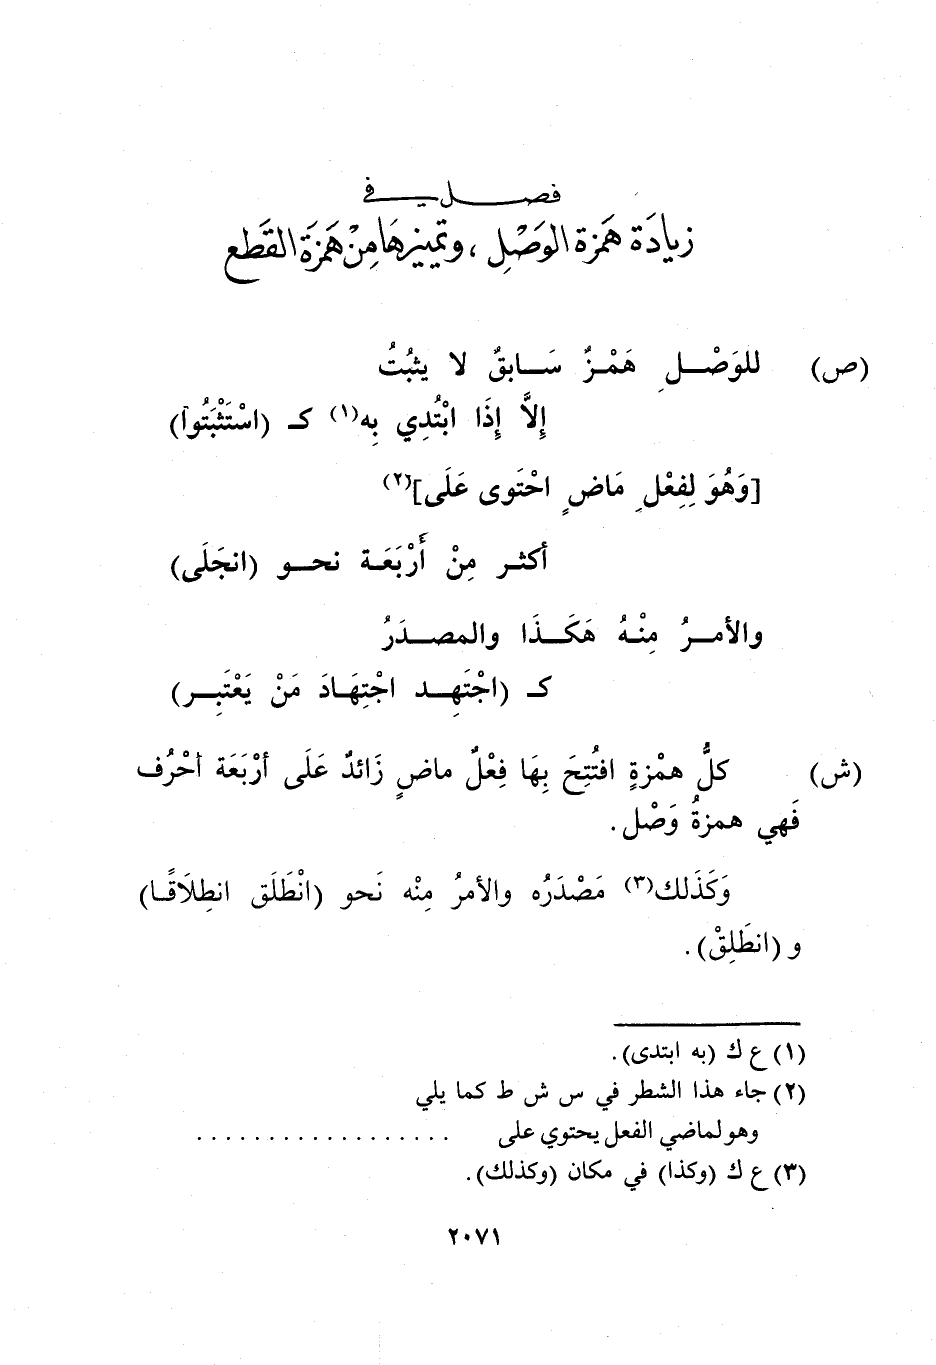 فصل في
زيادَة هَمزة الوَصْلِ، وتمييزهَا مِنْ هَمزَة القَطع
(ص) للوَصْلِ هَمْزٌ سَابقٌ لا يثبُتُ
إِلَّا إِذَا ابْتُدِي بِه(١) كـ (اسْتَثْبَتُوا)
[وَهُوَ لِفِعْلٍ مَاضٍ احْتَوى عَلَى](٢)
أكثر مِنْ أَرْبَعَة نحو (انجَلَى)
والأمرُ مِنْهُ هَكَذَا والمصدَرُ
كـ (اجْتَهِد اجْتِهَادَ مَنْ يَعْتَبِر)
(ش) كلُّ همْزةٍ افتُتِحَ بِهَا فِعْلٌ ماضٍ زَائدٌ عَلَى أرْبَعَة أحْرُف
فَهي همزةُ وَصْل.
وَكَذَلك(٣) مَصْدَرُه والأمرُ مِنْه نَحو (انْطَلَق انطِلَاقًا)
و (انطَلِقْ).
(١) ع ك (به ابتدى).
(٢) جاء هذا الشطر في س ش ط كما يلي
وهو لماضي الفعل يحتوي على . . . . . . . . . . . . . . . . . .
(٣) ع ك (وكذا) في مكان (وكذلك).
٢٠٧١